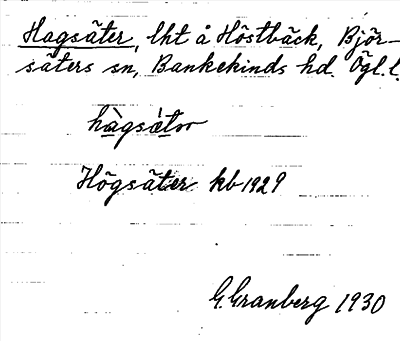 Hagsäter, lht å Höstbäck, Björ-
säters sn, Bankekinds hd. Ögl. l.
hàgsä̀tər
Högsäter kb 1929
G. Granberg 1930